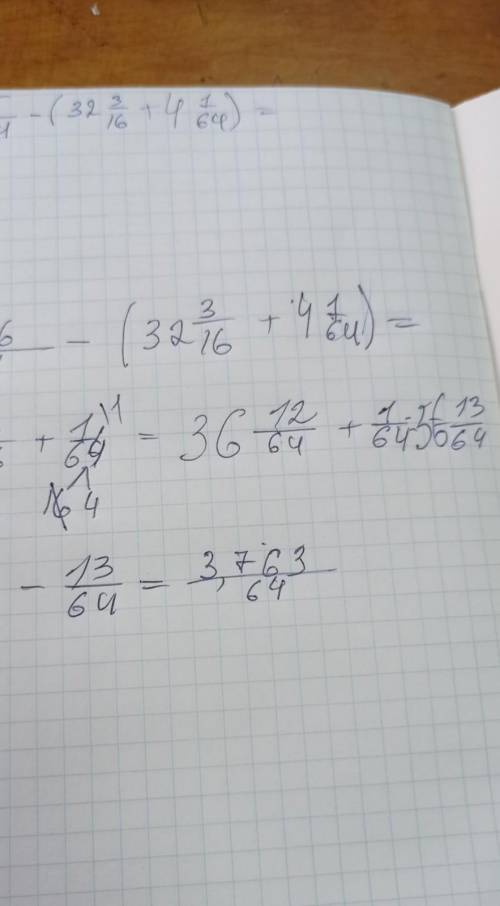 - (32 3/16 + 4 1/64) =
- (32 3/16 + 4 1/64) =
+ 1/64 \1 = 36 12/64 + 1/64 = 36 13/64
16 4
- 13/64 = 3,763/64